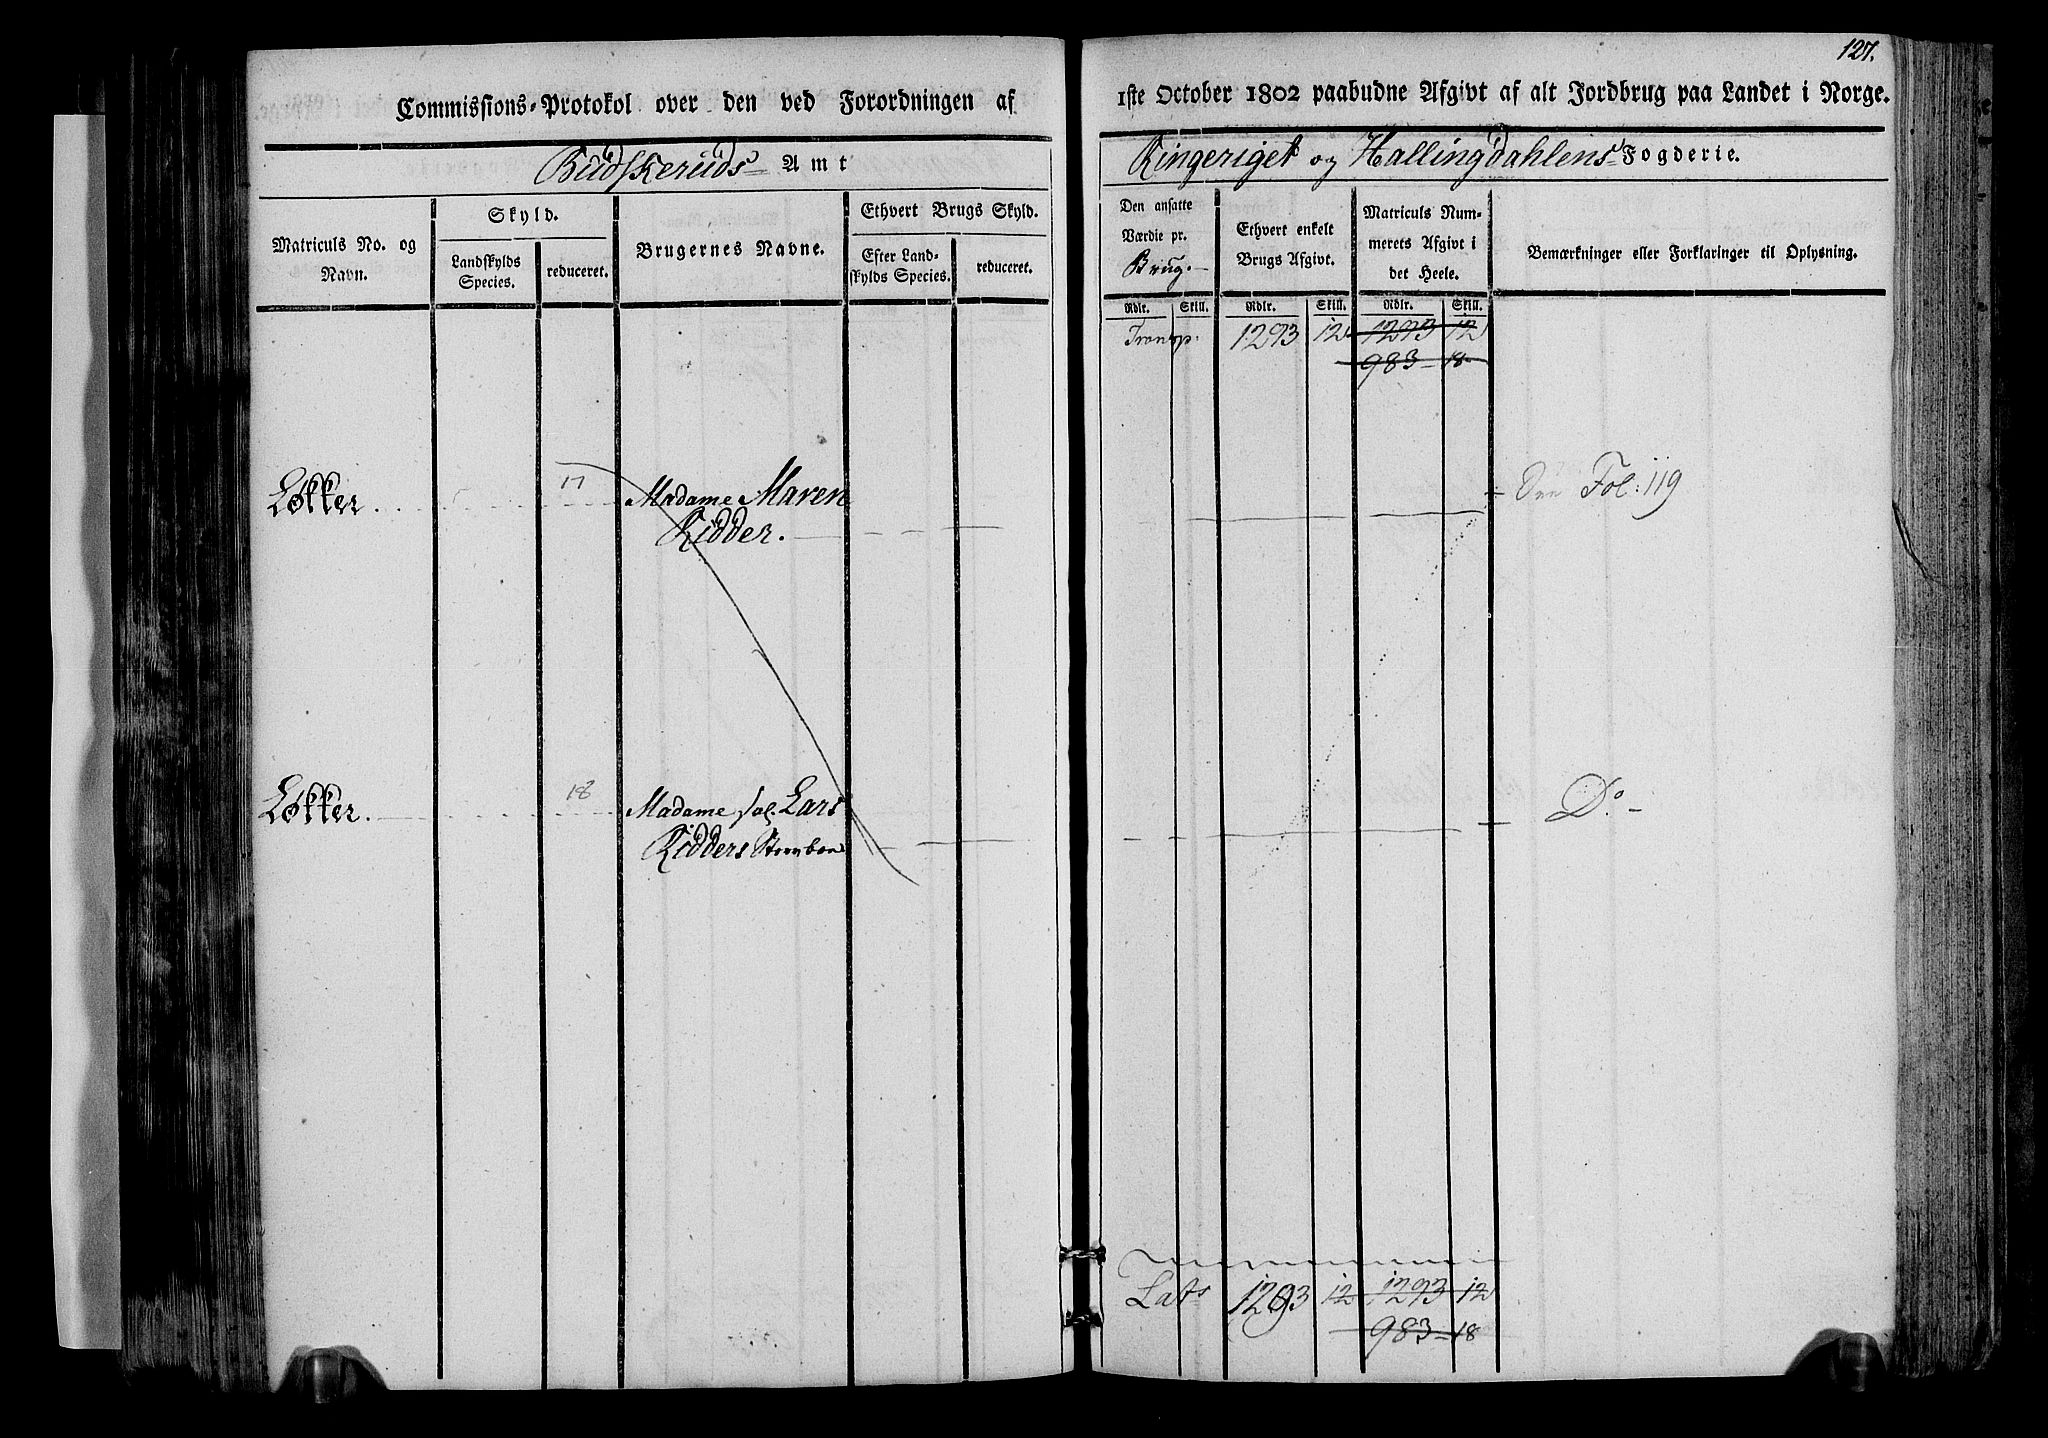 127.
Commissions-Protokol over den ved Forordningen af
1ste October 1802 paabudne Afgivt af alt Jordbrug paa Landet i Norge.
Budskeruds Amt
Ringeriget og Hallingdahlens Fogderie.
Matriculs No. og Navn.
Skyld.
Landskylds Species.
reduceret.
Brugernes Navne.
Ethvert Brugs Skyld.
Efter Landskylds Species.
reduceret.
Den ansatte Værdie pr. Brug.
Ethvert enkelt Brugs Afgivt.
Matriculs Nummerets Afgivt i det Heele.
Bemærkninger eller Forklaringer til Oplysning.
Rdlr. Skill. Rdlr. Skill. Rdlr. Skill.
Transp. 1293 12 1293 12
983 18
Løkker. 17 Madame Maren Fol: 119
Ridder.
Løkker. 18 Madame sal. Lars Do
Ridders
Lats 1293 12 1293 12
983 18